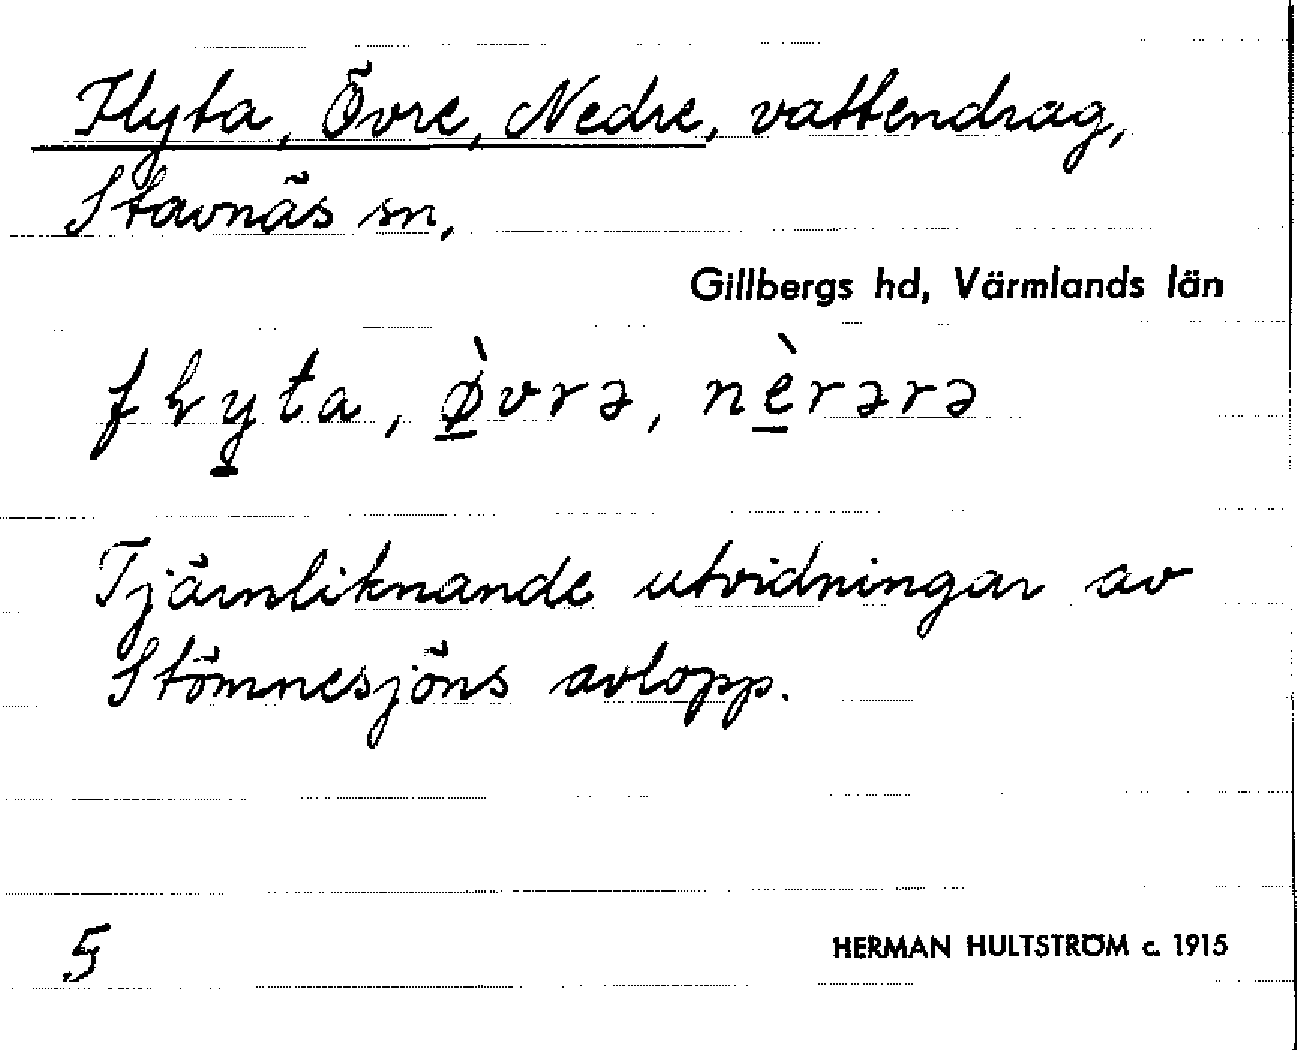 Flyta, Övre, Nedre, vattendrag,
Stavnäs sn,
Gillbergs hd, Värmlands län
flyta, ø̀vrə, nèrərə
Tjärnliknande utvidningar av
Stömnesjöns avlopp.
5
HERMAN HULTSTRÖM c. 1915